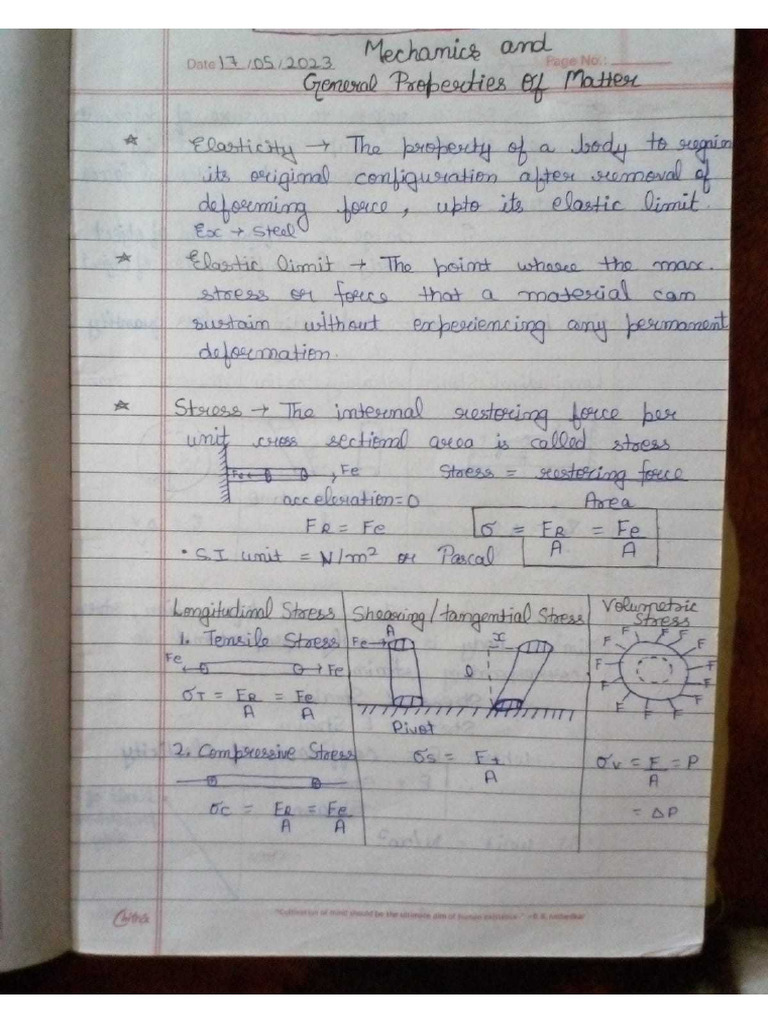 Mechanics and
Date 17/05/2023 Page No.:
General Properties Of Matter
Elasticity → The property of a body to regain
its original configuration after removal of
deforming force, upto its elastic limit.
Ex → Steel
Elastic limit → The point where the max.
stress or force that a material can
sustain without experiencing any permanent
deformation.
Stress → The internal restoring force per
unit cross sectional area is called stress
Fe Fe Stress = restoring force
acceleration = 0 Area
FR = Fe σ = FR = Fe
A A
• S.I unit = N/m² or Pascal
Longitudinal Stress Shearing/tangential Stress Volumetric Stress
1. Tensile Stress
Fe Fe
σT = FR = Fe
A A
2. Compressive Stress
σc = FR = Fe
A A
Fe A x
Pivot
σs = Ft
A
F F F F F F F F F F F F
σv = F = P
A
= ΔP
Chitra
"Cultivation of mind should be the ultimate aim of human existence." -B.R. Ambedkar